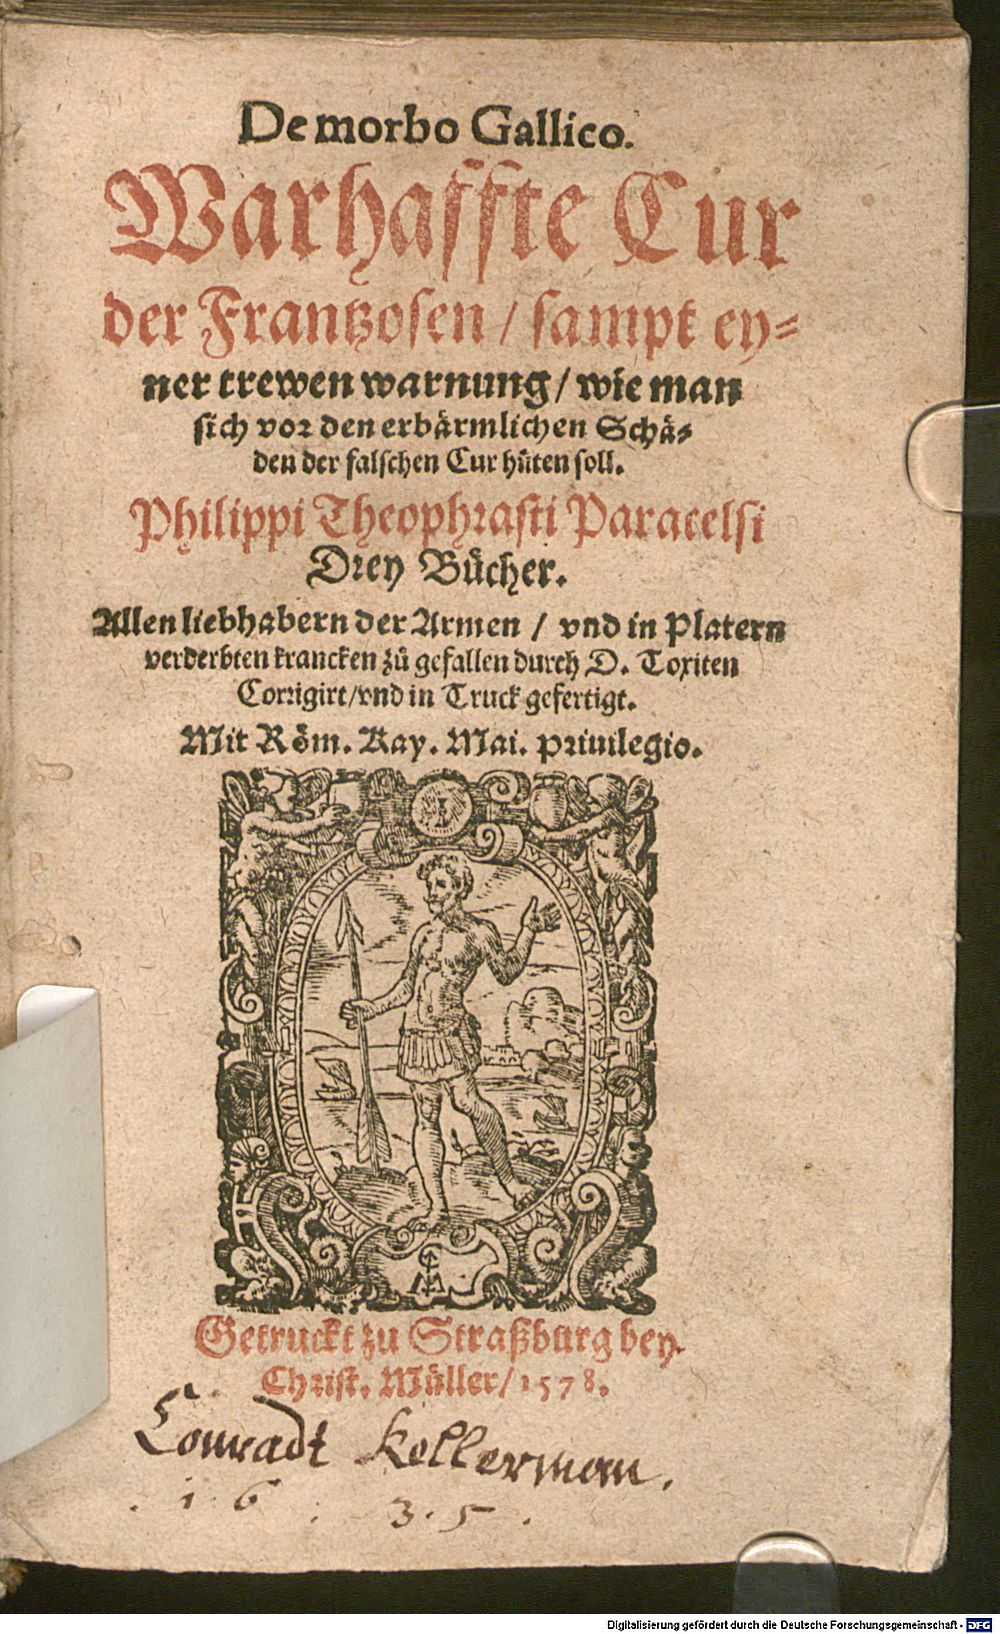 De morbo Gallico.
Warhaffte Cur
der Frantzosen / sampt ey=
ner trewen warnung / wie man
sich vor den erbärmlichen Schä=
den der falschen Cur hüten soll.
Philippi Theophrasti Paracelsi
Drey Bücher.
Allen liebhabern der Armen / vnd in Platern
verderbten krancken zů gefallen durch D. Toxiten
Corrigirt / vnd in Truck gefertigt.
Mit Röm. Kay. Mai. priuilegio.
Getruckt zu Straßburg bey
Christ. Müller / 1578.
Conradt Kellerman.
. 1 6 . 3 . 5 .
Digitalisierung gefördert durch die Deutsche Forschungsgemeinschaft - DFG